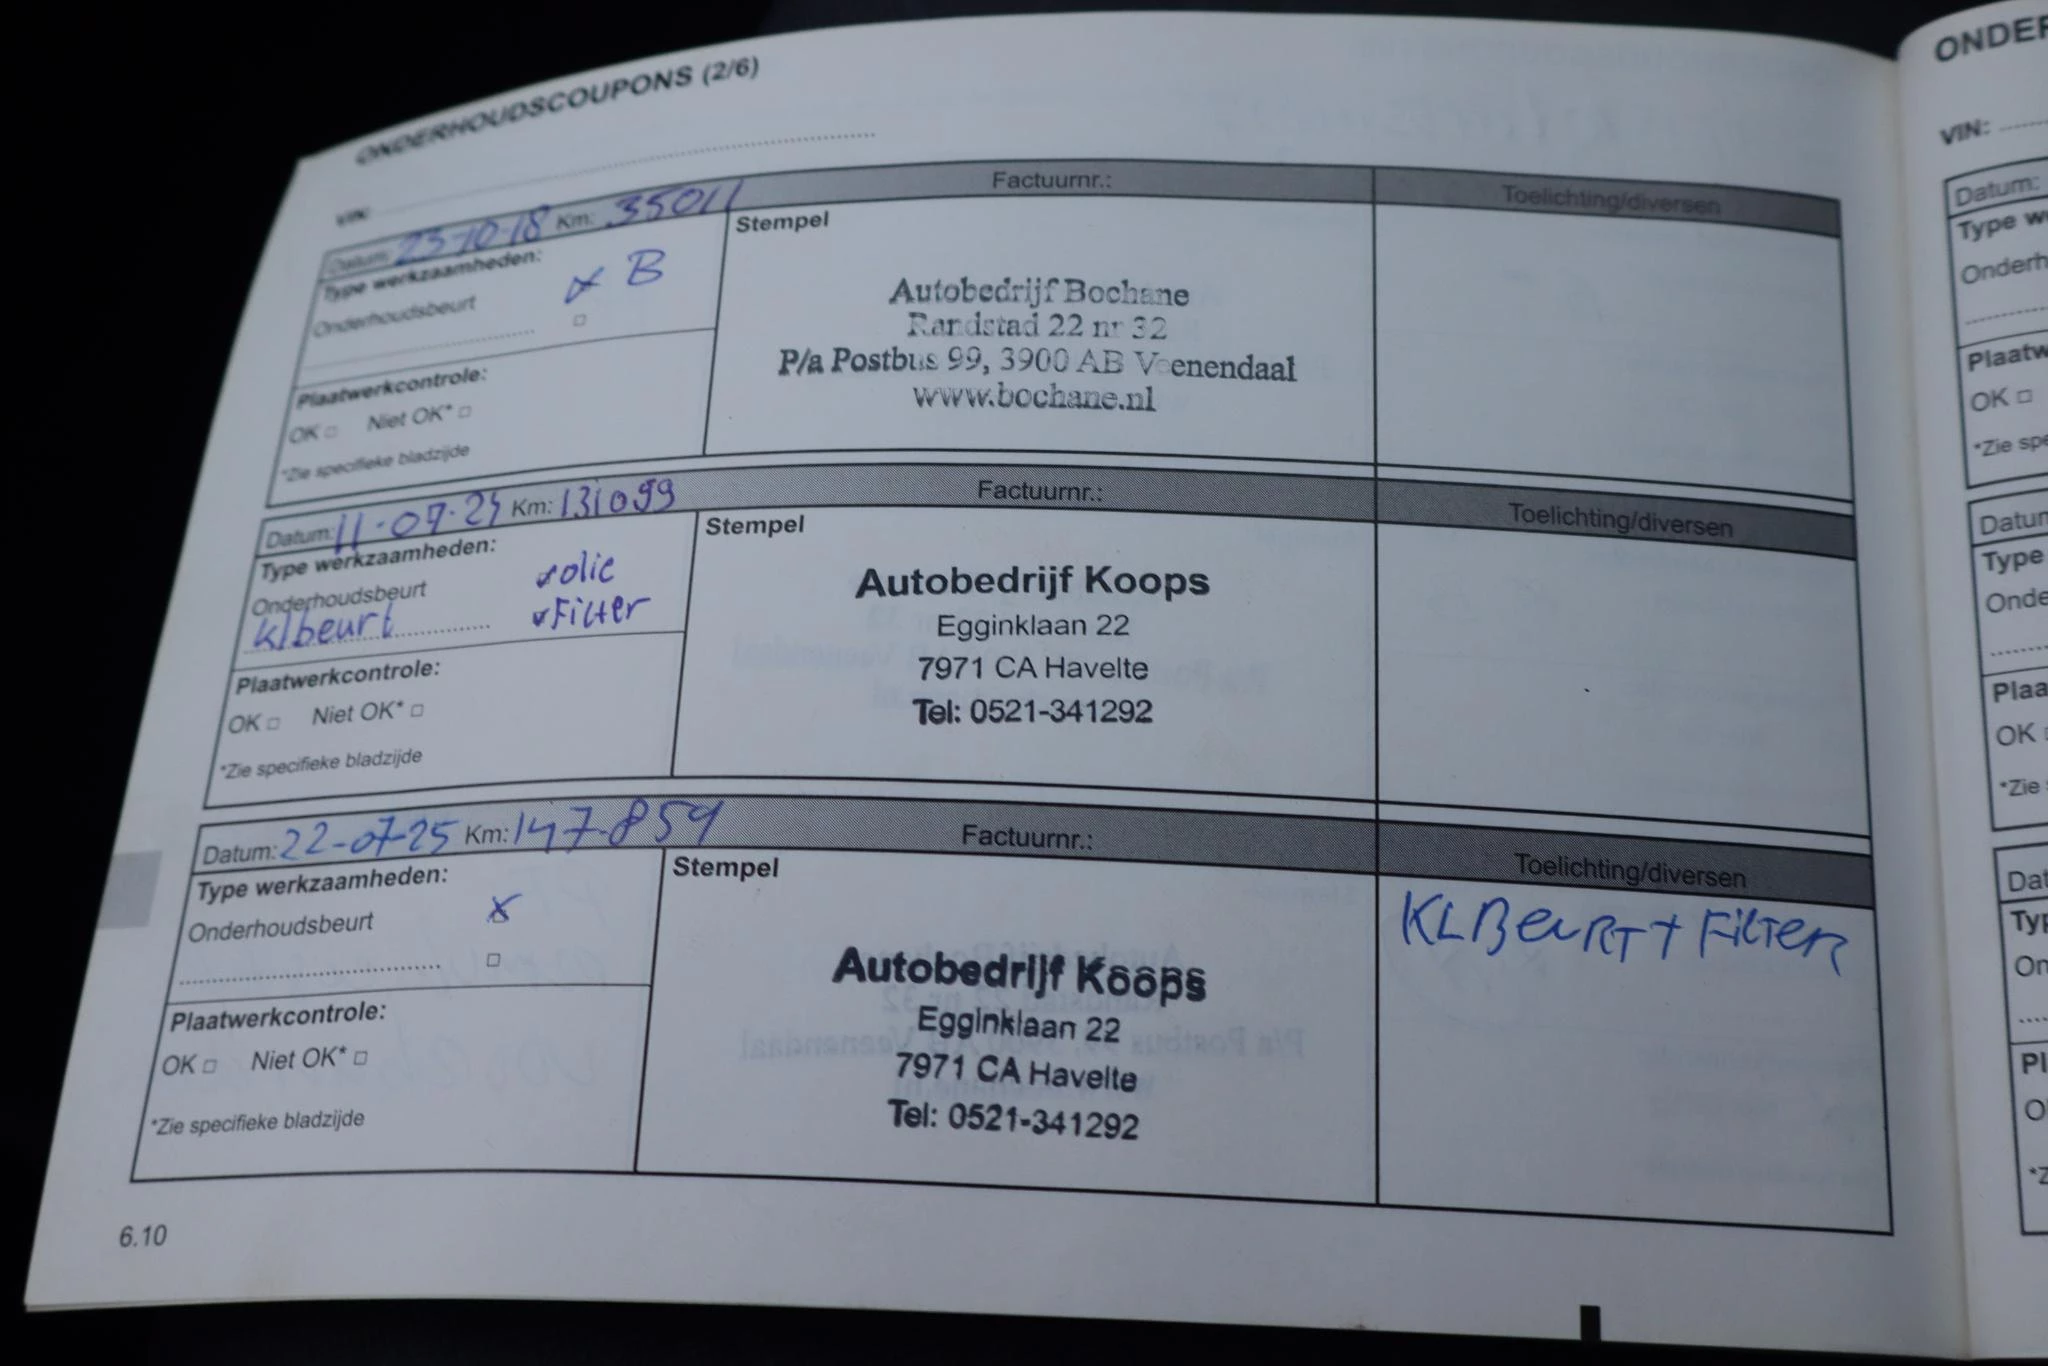 ONDERHOUDSCOUPONS (2/6)
VIN:
Datum: 23-10-18 Km: 35011 Factuurnr.: Toelichting/diversen
Type werkzaamheden:
Onderhoudsbeurt B
Stempel
Autobedrijf Bochane
Randstad 22 nr 32
P/a Postbus 99, 3900 AB Veenendaal
www.bochane.nl
Plaatwerkcontrole:
OK Niet OK*
*Zie specifieke bladzijde
Datum: 11-07-24 Km: 131099 Factuurnr.: Toelichting/diversen
Type werkzaamheden:
Onderhoudsbeurt olie
klbeurt Filter
Stempel
Autobedrijf Koops
Egginklaan 22
7971 CA Havelte
Tel: 0521-341292
Plaatwerkcontrole:
OK Niet OK*
*Zie specifieke bladzijde
Datum: 22-07-25 Km: 147-859 Factuurnr.: Toelichting/diversen
Type werkzaamheden:
Onderhoudsbeurt X
Stempel
Autobedrijf Koops
Egginklaan 22
7971 CA Havelte
Tel: 0521-341292
KLBeuRT + FilTeR
Plaatwerkcontrole:
OK Niet OK*
*Zie specifieke bladzijde
6.10
VIN:
Datum:
OK
OK